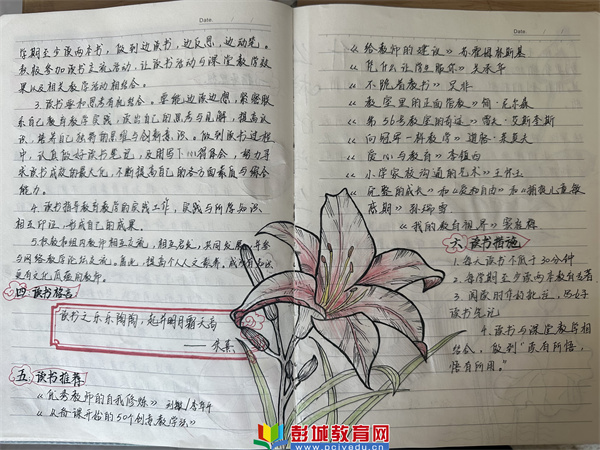 Date.
学期至少读两本书，做到边读书，边反思，边动笔。
积极参加读书交流活动，让读书活动与课堂教学效
果以及相关教学活动相结合。
3.读书要和思考有机结合。要能边读边想，紧密联
系自己教育教学实践，读出自己的思考与见解，提高认
识，培养自己独特的思维与创新意识。做到读书过程
中，认真做好读书笔记，及时写下心得体会，努力寻
求读书成效的最大化，不断提高自己的各方面素质与综合
能力。
4.读书指导教育教学的实践工作，实践与所学知识
相互印证，形成自己的成果。
5.积极和组内教师相互交流，相互名史，共同发展。
与网络教学论坛交流。提高个人人文素养。
更有文化底蕴的教师。
四 读书格言
读书之乐乐陶陶，起弄明月霜天高
—— 朱熹
五、读书推荐
《优秀教师的自我修炼》
《从备课开始的50个创意教学法》
Date.
《给教师的建议》苏霍姆林斯基
《凭什么让学生服你》吴承华
《不跪着教书》吴非
《教室里的正面管教》简·尼尔森
《第56号教室的奇迹》雷夫·艾斯奎斯
《向冠军一样教学》道格·莱莫夫
《爱心与教育》李镇西
《小学家校沟通的艺术》王怀玉
《完整的成长》和《爱和自由》和《捕捉儿童敏
感期》孙瑞雪
《我的教育视界》
六、读书措施
1.每天读书不低于30分钟
2.每学期至少读两本教育名著
3.阅读时作批注，然好
读书笔记
4.读书与课堂教学相
结合，做到“读有所悟，
悟有所用。”
彭城教育网
www.pcjyedu.cn